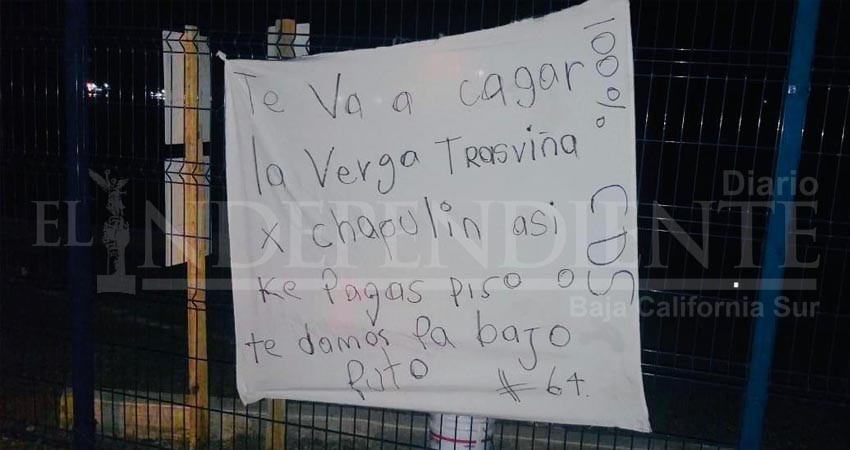 Te Va a cagar
la Verga Trasviña
x chapulin asi
Ke Pagas piso o
te damos Pa bajo
Puto #64.
100% CDS
EL INDEPENDIENTE
Diario
Baja California Sur